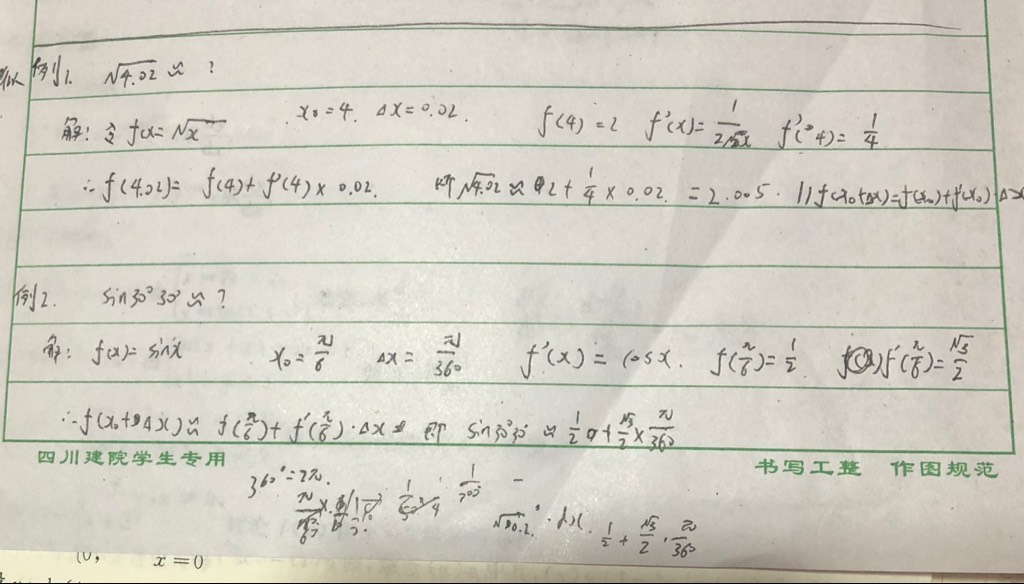 例1. √4.02 ≈ ?
解: 令 f(x)=√x x₀=4 Δx=0.02. f(4)=2 f'(x)=1/(2√x) f'(4)=1/4
∴ f(4.02)= f(4)+f'(4)×0.02. 即√4.02 ≈ 2+1/4×0.02 =2.005. // f(x₀+Δx)=f(x₀)+f'(x₀)·Δx
例2. sin30°30' ≈ ?
解: f(x)=sinx x₀=π/6 Δx=π/360 f'(x)=cosx. f(π/6)=1/2 f'(π/6)=√3/2
∴f(x₀+Δx)≈ f(π/6)+f'(π/6)·Δx 即 sin30°30' ≈ 1/2+√3/2×π/360
四川建院学生专用 书写工整 作图规范
360°=2π.
1/2+√3/2·π/360
x=0